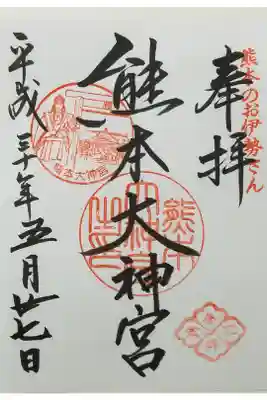 熊本のお伊勢さん
奉拝
熊本大神宮
熊本大神宮
平成三十年五月廿七日